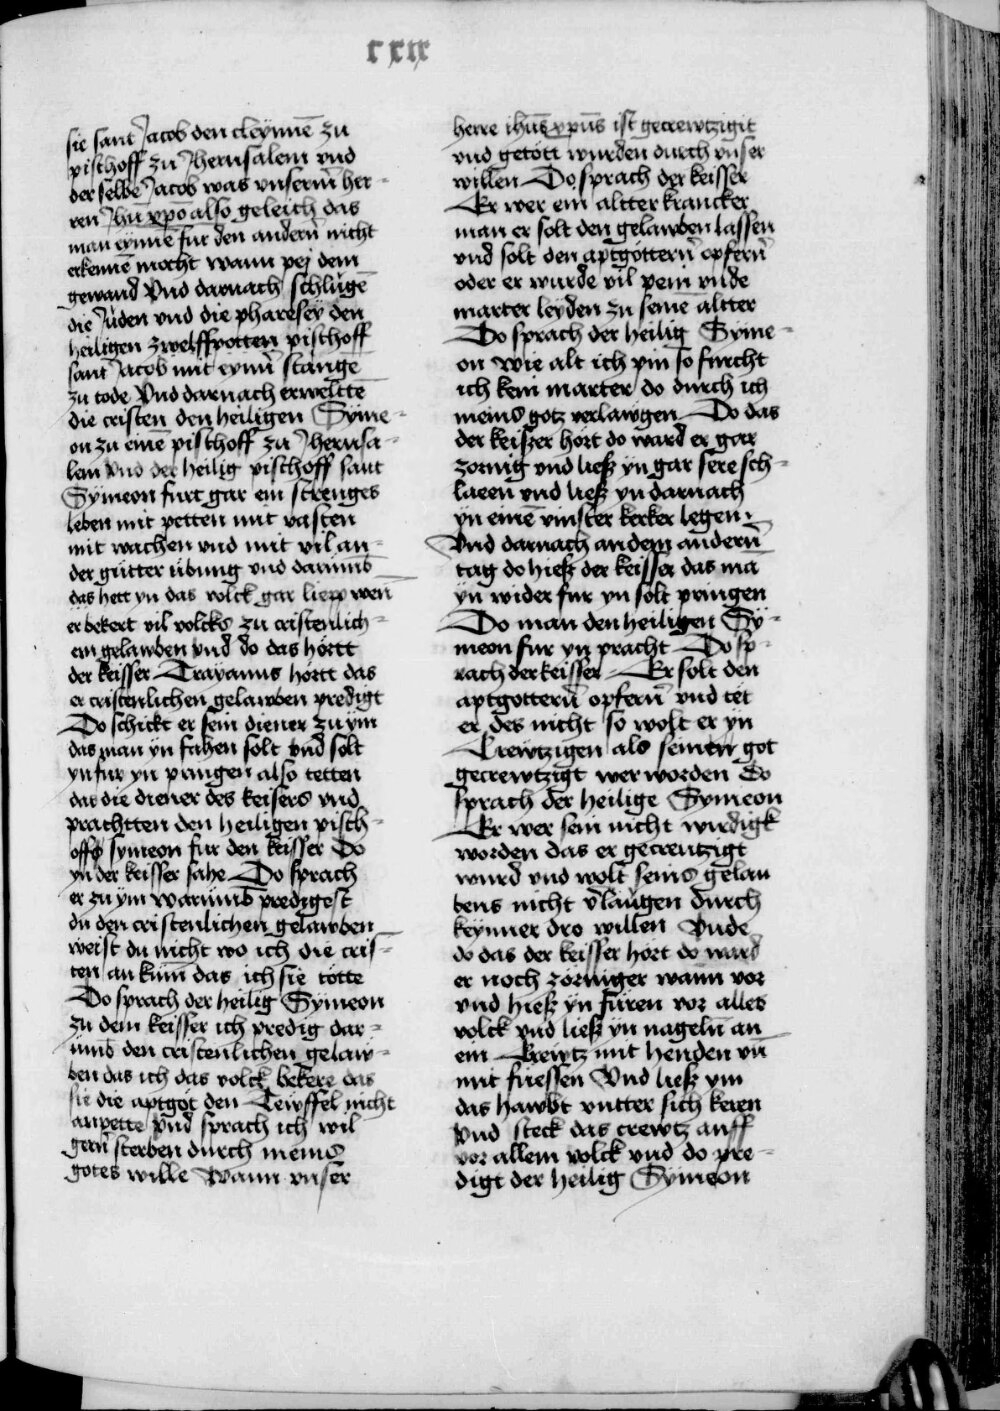 cxix
sie sant Jacob den cleÿnnē zu
pischoff zu Jherusalem vnd
der selbe Jacob was vnserm̄ her-
ren Jhū xp̄o also geleich das
man eÿnnē fur den andern̄ nicht
erkennē mocht wann pej dem
gewand Vnd darnach schlugē
die Juden vnd die pharesey den
heiligen zwelffpotten pischoff
sant Jacob mit eynn̄ stangē
zu tode Vnd darnach erweltē
die cristen den heiligen Sÿme-
on zu einē pischoff zu Jherusa-
lem Vnd der heilig pischoff sant
Sÿmeon furt gar ein strenges
leben mit petten mit vasten
mit wachen vnd mit vil an-
der gutter ubung vnd darumb
das hett yn das volck gar liepp wen̄
er bekert vil volcks zu cristenlich-
em gelawben vnd do das hortt
der keisser Trayanus hortt das
er cristenlichen gelawben predigt
Do schickt er sein diener zu ym
das man yn fahen solt vnd solt
yn fur yn pringen also tetten
dar die diener des keisers vnd
prachtten den heiligen pisch-
offe symeon fur den keisser Do
yn der keisser sahe Do sprach
er zu ym warumb predigest
du den cristenlichen gelawben
weist du nicht wo ich die cris-
ten an kum̄ das ich sie totte
Do sprach der heilig Sÿmeon
zu dem keisser ich predig dar-
umb den cristenlichen gelaw-
ben das ich das volck bekere das
sie die aptgot den Tewffel nicht
anpette vnd sprach ich wil
gern̄ sterben durch meins
gotes wille Wann vnser
herre ihūs xp̄us ist gecrewtzigit
vnd getött wurden durch vnser
willen Do sprach der keisser
Er wer ein altter krancker
man er solt den gelawben lassen
vnd solt den aptgöttern̄ opfern̄
oder er wurde vil pein vnde
marter leyden zu seinē altter
Do sprach der heilig Syme-
on Wie alt ich pin so furcht
ich kein marter do durch ich
meins gotz verlawgen Do das
der keiszer hort do ward er gar
zornig vnd liesz yn gar sere sch-
laeen vnd liesz yn darnach
yn einē vinster kerker legen
Vnd darnach an dem andern̄
tag do hiesz der keisser das mā
yn wider fur yn solt pringen
Do man den heiligen Sÿ-
meon fur yn pracht Do sp-
rach der keisser Er solt den
aptgottern̄ opfern̄ vnd tet
er des nicht so wolt er yn
Crewtzigen als seinen got
gecrewtzigt wer worden Do
sprach der heilige Symeon
Er wer sein nicht wirdigk
worden das er gecreutzigt
wurd vnd wolt seins gelau
bens nicht v̄laugen durch
keynner dro willen Vnde
do das der keisser hort do ward
er noch zorniger wann vor
vnd hiesz yn füren vor alles
volck vnd liesz yn nageln̄ an
ein Krewtz mit henden vn̄
mit fuessen Vnd liesz ym
das hawbt vntter sich keren
Vnd steck das crewtz auff
vor allem volck vnd do pre-
digt der heilig Sÿmeon